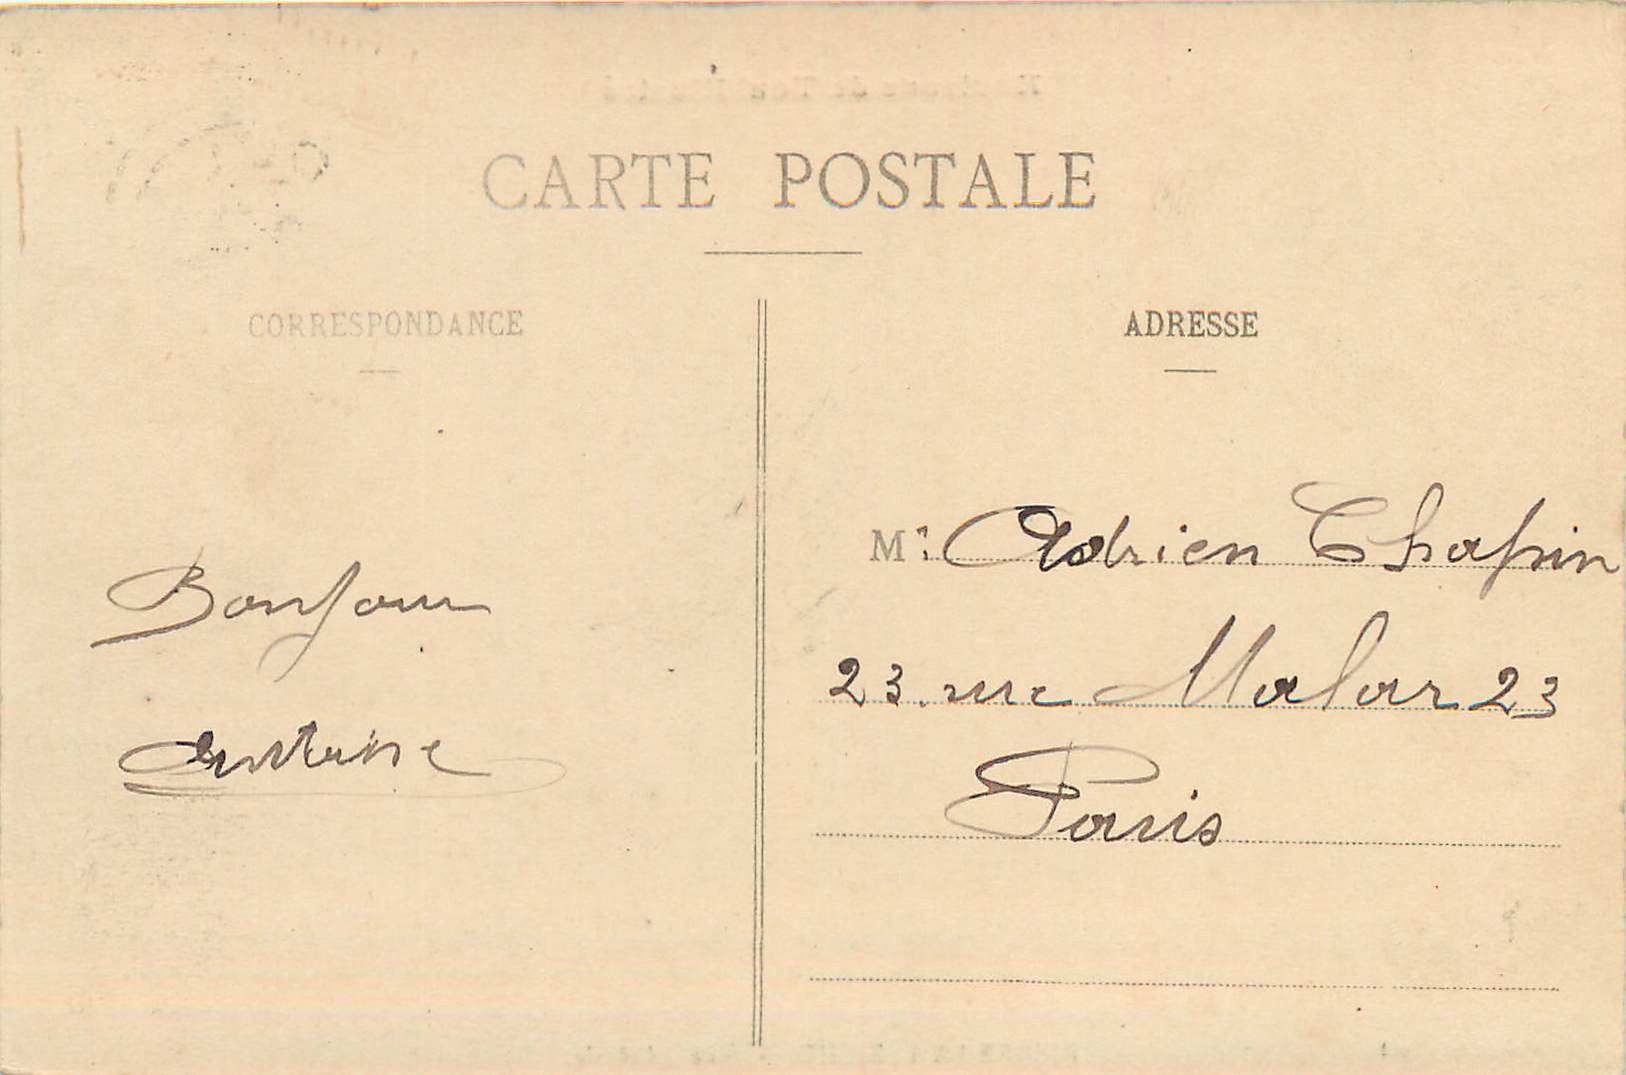 CARTE POSTALE
CORRESPONDANCE
ADRESSE
Bonjour
Antoine
M. Adrien Chapin
23 rue Malar 23
Paris